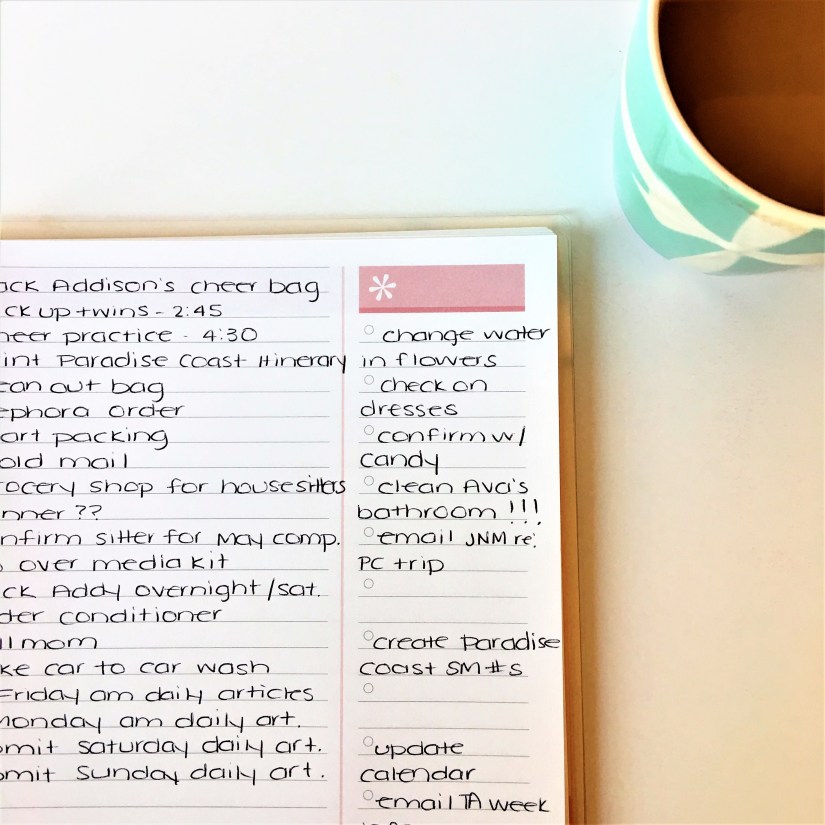 ack Addison's cheer bag
ck up twins - 2:45
heer practice - 4:30
int Paradise Coast Itinerary
ean out bag
ephora order
art packing
old mail
rocery shop for housesitters
nner ??
nfirm sitter for May comp.
over media kit
ck Addy overnight/sat.
der conditioner
ll mom
ke car to car wash
Friday am daily articles
Monday am daily art.
omit Saturday daily art.
omit Sunday daily art.
*
change water
in flowers
check on
dresses
confirm w/
candy
clean Ava's
bathroom !!!
email JNM re:
PC trip
create Paradise
Coast SM #s
update
calendar
email TA week